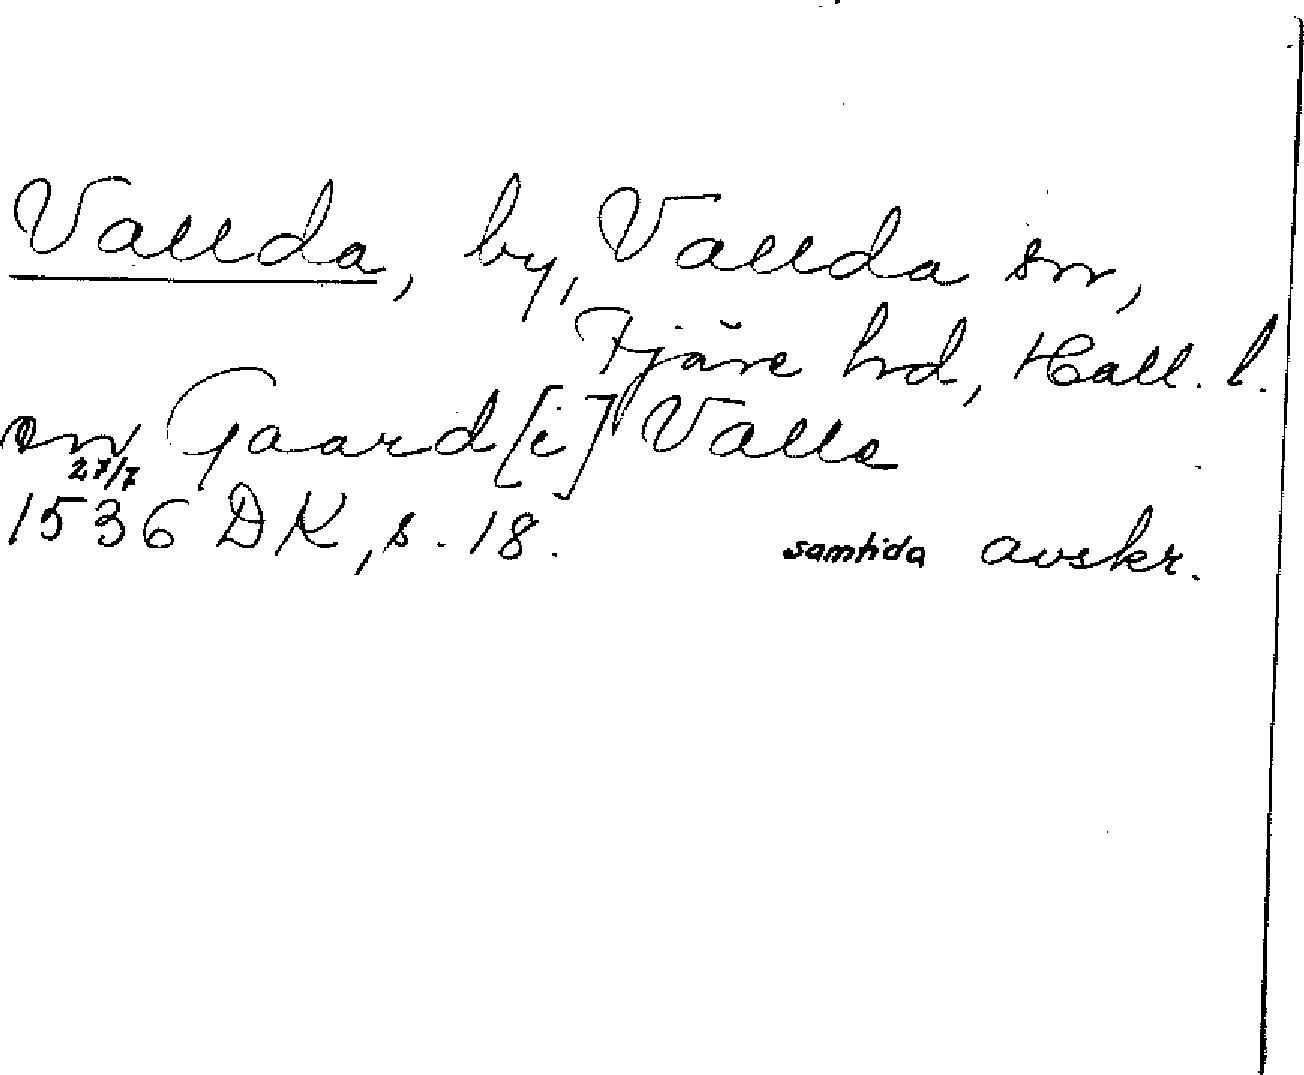 Vallda, by, Vallda sn,
Fjäre hd, Hall. l.
en Gaard [i] Valle
27/7
1536 DK, s. 18. samtida avskr.